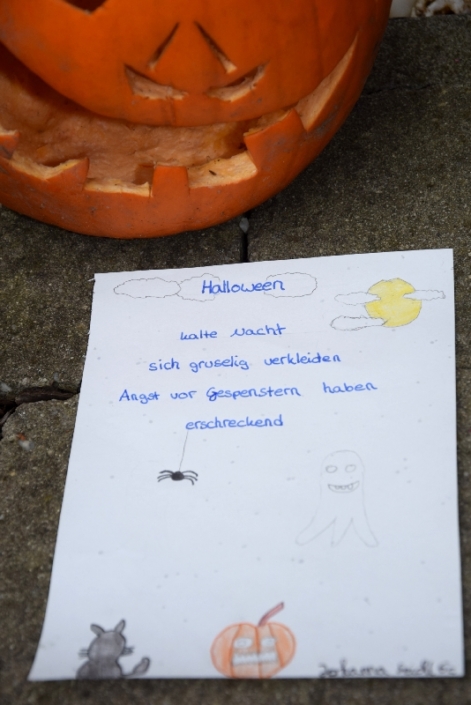 Halloween
kalte Nacht
sich gruselig verkleiden
Angst vor Gespenstern haben
erschreckend
Johanna